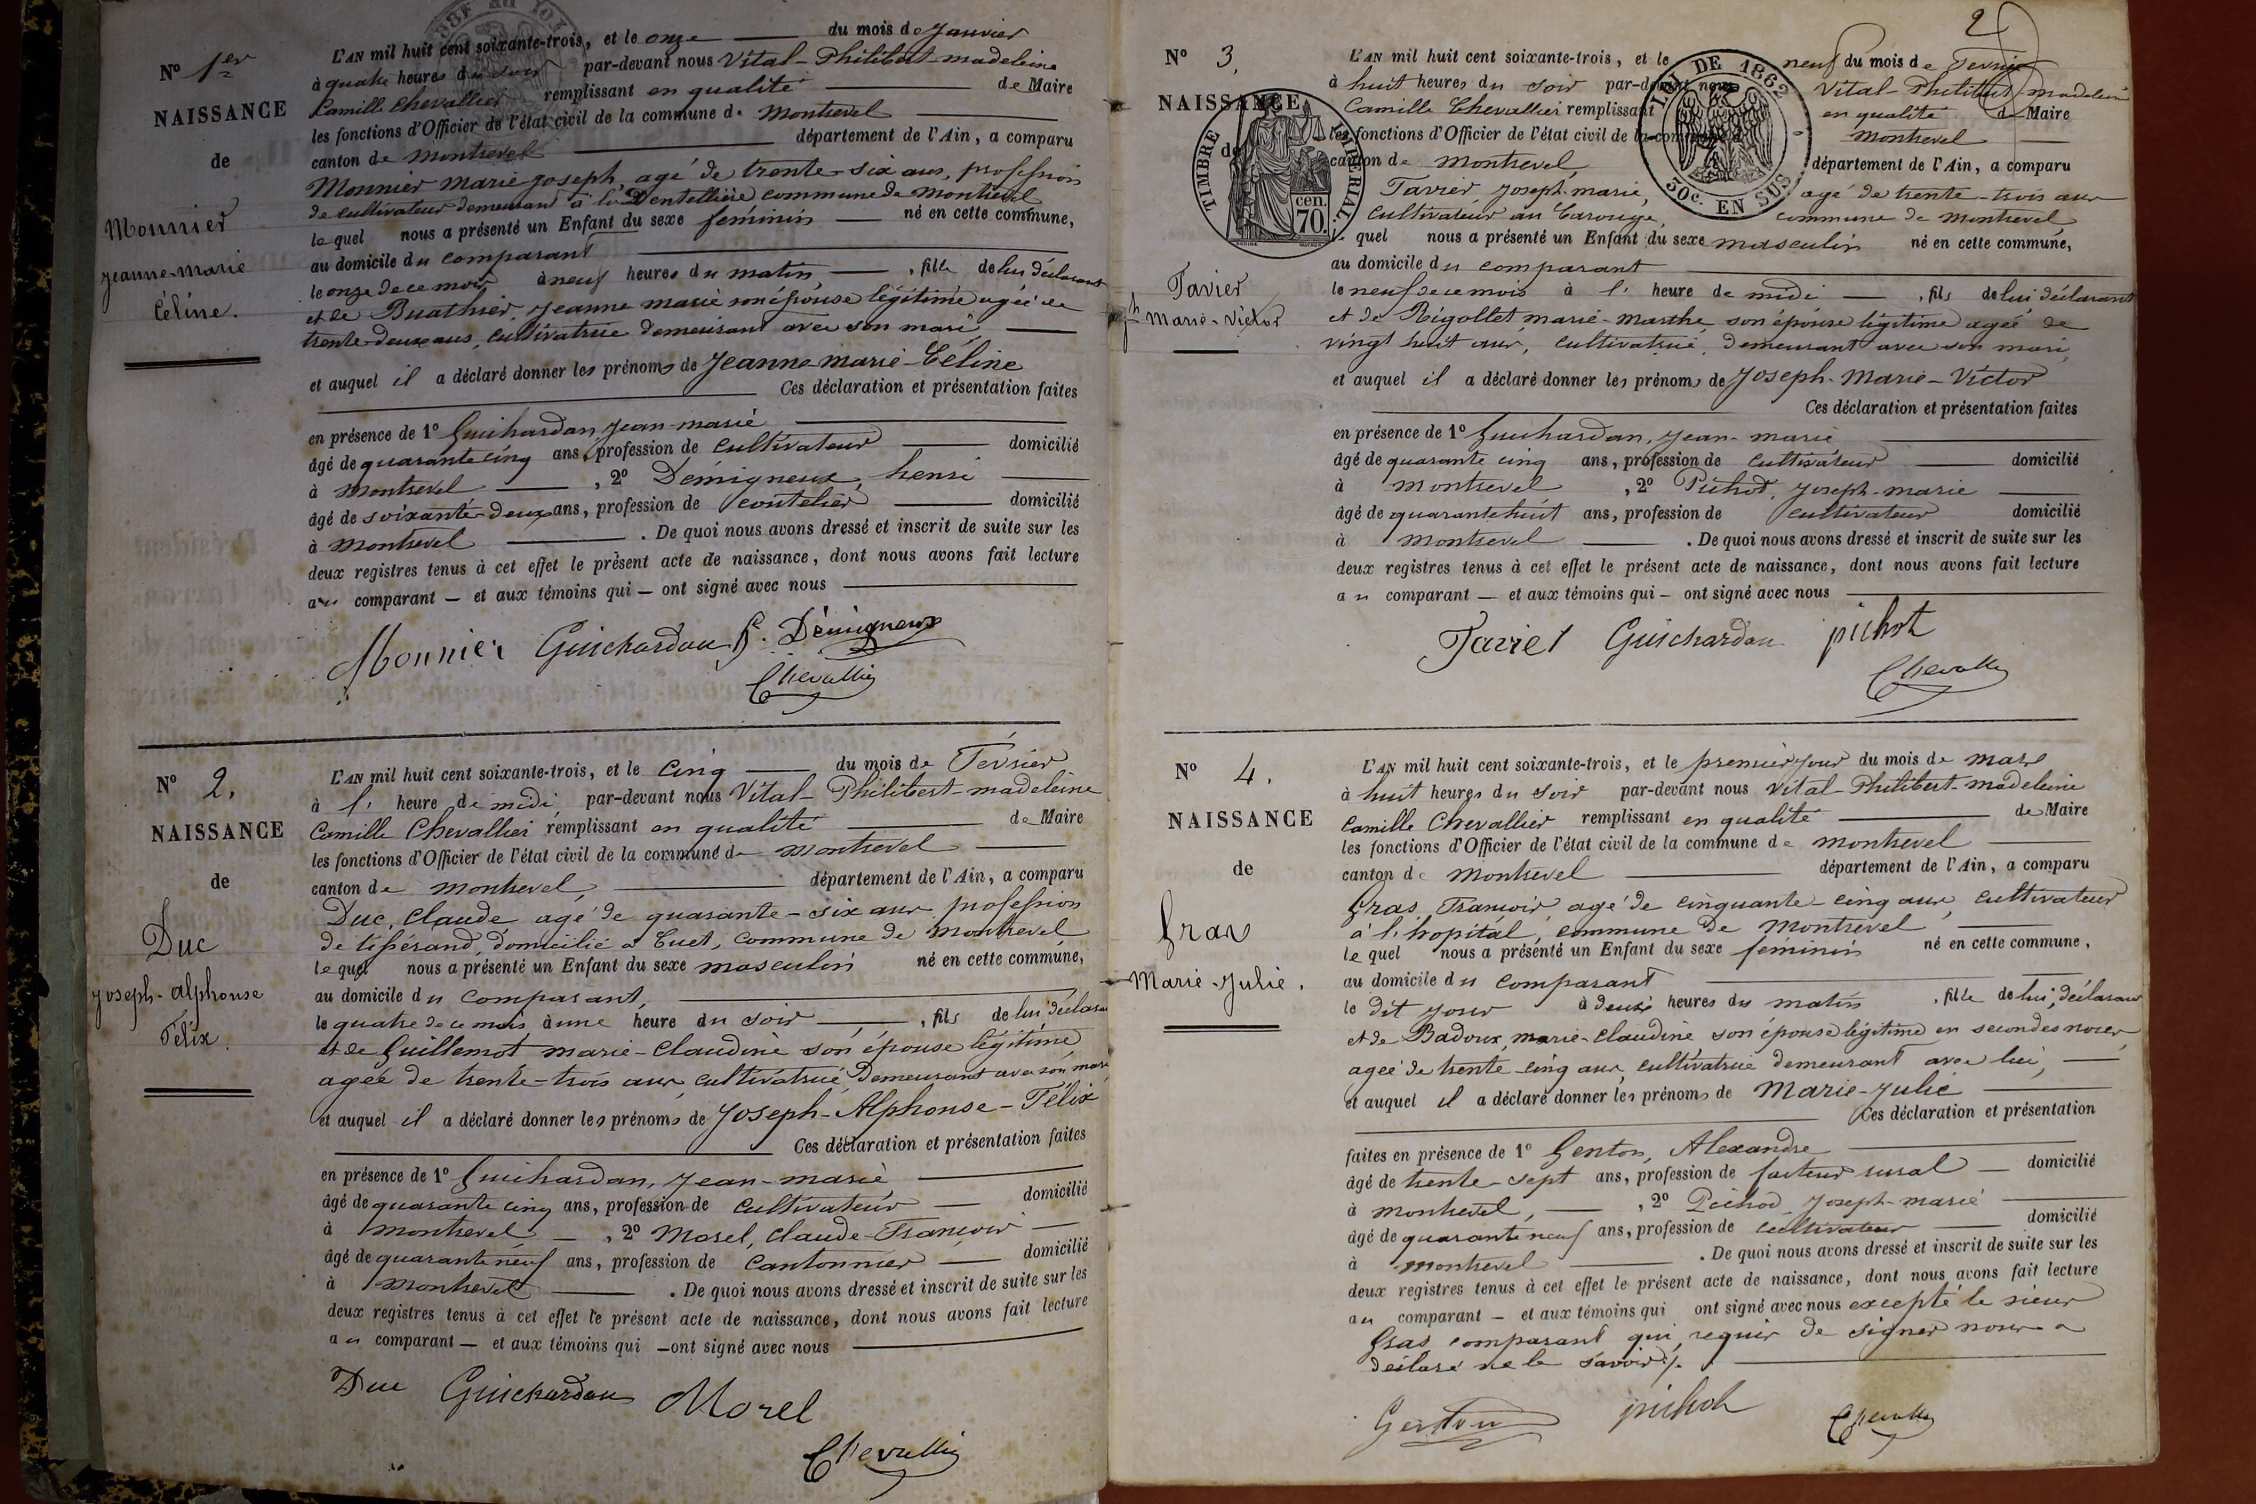 Nº 1er
NAISSANCE
de
Monnier
Jeanne-Marie
Céline.
L'AN mil huit cent soixante-trois, et le onze du mois de Janvier
à quatre heures du soir par-devant nous Vital-Philibert-madeleine
Camille Chevallier remplissant en qualité de Maire
les fonctions d'Officier de l'état civil de la commune de Montrevel
canton de Montrevel département de l'Ain, a comparu
Monnier Marie Joseph, agé de trente-six ans, profession
de cultivateur demeurant à la Dentellière commune de Montrevel
lequel nous a présenté un Enfant du sexe féminin né en cette commune,
au domicile du comparant
le onze de ce mois à neuf heures du matin, fille de lui déclarant
et de Buathier, Jeanne marie son épouse légitime agée de
trente-deux ans, cultivatrice demeurant avec son mari,
et auquel il a déclaré donner les prénoms de Jeanne marie-Céline
Ces déclaration et présentation faites
en présence de 1º Guichardan, Jean-marie
âgé de quarante cinq ans, profession de cultivateur domicilié
à Montrevel, 2º Démigneux, henri
âgé de soixante-deux ans, profession de coutelier domicilié
à Montrevel. De quoi nous avons dressé et inscrit de suite sur les
deux registres tenus à cet effet le présent acte de naissance, dont nous avons fait lecture
au comparant — et aux témoins qui — ont signé avec nous
Monnier Guichardan h. Démigneux
Chevallier
Nº 2.
NAISSANCE
de
Duc
Joseph-Alphonse
Félix.
L'AN mil huit cent soixante-trois, et le cinq du mois de Février
à l' heure de midi par-devant nous Vital-Philibert-madeleine
Camille Chevallier remplissant en qualité de Maire
les fonctions d'Officier de l'état civil de la commune de Montrevel
canton de Montrevel, département de l'Ain, a comparu
Duc, Claude agé de quarante-six ans profession
de tisserand, domicilié à Cuet, commune de Montrevel
lequel nous a présenté un Enfant du sexe masculin né en cette commune,
au domicile du comparant,
le quatre de ce mois à une heure du soir, fils de lui déclarant
et de Guillemot marie-Claudine son épouse légitime
agée de trente-trois ans cultivatrice demeurant avec son mari
et auquel il a déclaré donner les prénoms de Joseph-Alphonse-Félix
Ces déclaration et présentation faites
en présence de 1º Guichardan, Jean-marie
âgé de quarante cinq ans, profession de cultivateur domicilié
à Montrevel, 2º Morel, Claude-François
âgé de quarante neuf ans, profession de Cantonnier domicilié
à Montrevel. De quoi nous avons dressé et inscrit de suite sur les
deux registres tenus à cet effet le présent acte de naissance, dont nous avons fait lecture
au comparant — et aux témoins qui — ont signé avec nous
Duc Guichardan Morel
Chevallier
2
Nº 3.
NAISSANCE
de
TIMBRE IMPÉRIAL
70 cen.
LOI DE 1862
30c. EN SUS
Tavier
Jph Marie-Victor
L'AN mil huit cent soixante-trois, et le neuf du mois de Février
à huit heures du soir par-devant nous Vital-Philibert madeleine
Camille Chevallier remplissant en qualité de Maire
les fonctions d'Officier de l'état civil de la commune de Montrevel
canton de Montrevel, département de l'Ain, a comparu
Tavier, Joseph-marie, agé de trente-trois ans
cultivateur au Carouge, commune de Montrevel
lequel nous a présenté un Enfant du sexe masculin né en cette commune,
au domicile du comparant
le neuf de ce mois à l' heure de midi, fils de lui déclarant
et de Rigollet marie-marthe son épouse légitime agée de
vingt huit ans, cultivatrice, demeurant avec son mari,
et auquel il a déclaré donner les prénoms de Joseph-Marie-Victor
Ces déclaration et présentation faites
en présence de 1º Guichardan, Jean-marie
âgé de quarante cinq ans, profession de cultivateur domicilié
à Montrevel, 2º Pichod, Joseph-marie
âgé de quarante huit ans, profession de cultivateur domicilié
à Montrevel. De quoi nous avons dressé et inscrit de suite sur les
deux registres tenus à cet effet le présent acte de naissance, dont nous avons fait lecture
au comparant — et aux témoins qui — ont signé avec nous
Tavier Guichardan pichot
Chevallier
Nº 4.
NAISSANCE
de
Gras
Marie-Julie.
L'AN mil huit cent soixante-trois, et le premier jour du mois de Mars
à huit heures du soir par-devant nous Vital-Philibert-madeleine
Camille Chevallier remplissant en qualité de Maire
les fonctions d'Officier de l'état civil de la commune de Montrevel
canton de Montrevel département de l'Ain, a comparu
Gras, François, agé de cinquante-cinq ans, cultivateur
à l'hopital, commune de Montrevel
lequel nous a présenté un Enfant du sexe féminin né en cette commune,
au domicile du comparant
le dit jour à deux heures du matin, fille de lui, déclarant
et de Badoux, marie-Claudine son épouse légitime en secondes noces,
agée de trente-cinq ans, cultivatrice demeurant avec lui,
et auquel il a déclaré donner les prénoms de Marie-Julie
Ces déclaration et présentation
faites en présence de 1º Genton, Alexandre
âgé de trente-sept ans, profession de facteur rural domicilié
à Montrevel, 2º Pichod Joseph-marie
âgé de quarante neuf ans, profession de cultivateur domicilié
à Montrevel. De quoi nous avons dressé et inscrit de suite sur les
deux registres tenus à cet effet le présent acte de naissance, dont nous avons fait lecture
au comparant — et aux témoins qui ont signé avec nous excepté le sieur
Gras comparant qui, requis de signer nous a
déclaré ne le savoir./.
Genton pichot Chevallier